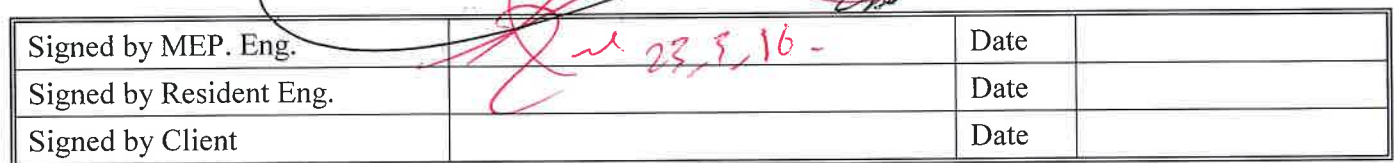 Signed by MEP. Eng. 23,5,16 - Date
Signed by Resident Eng. Date
Signed by Client Date